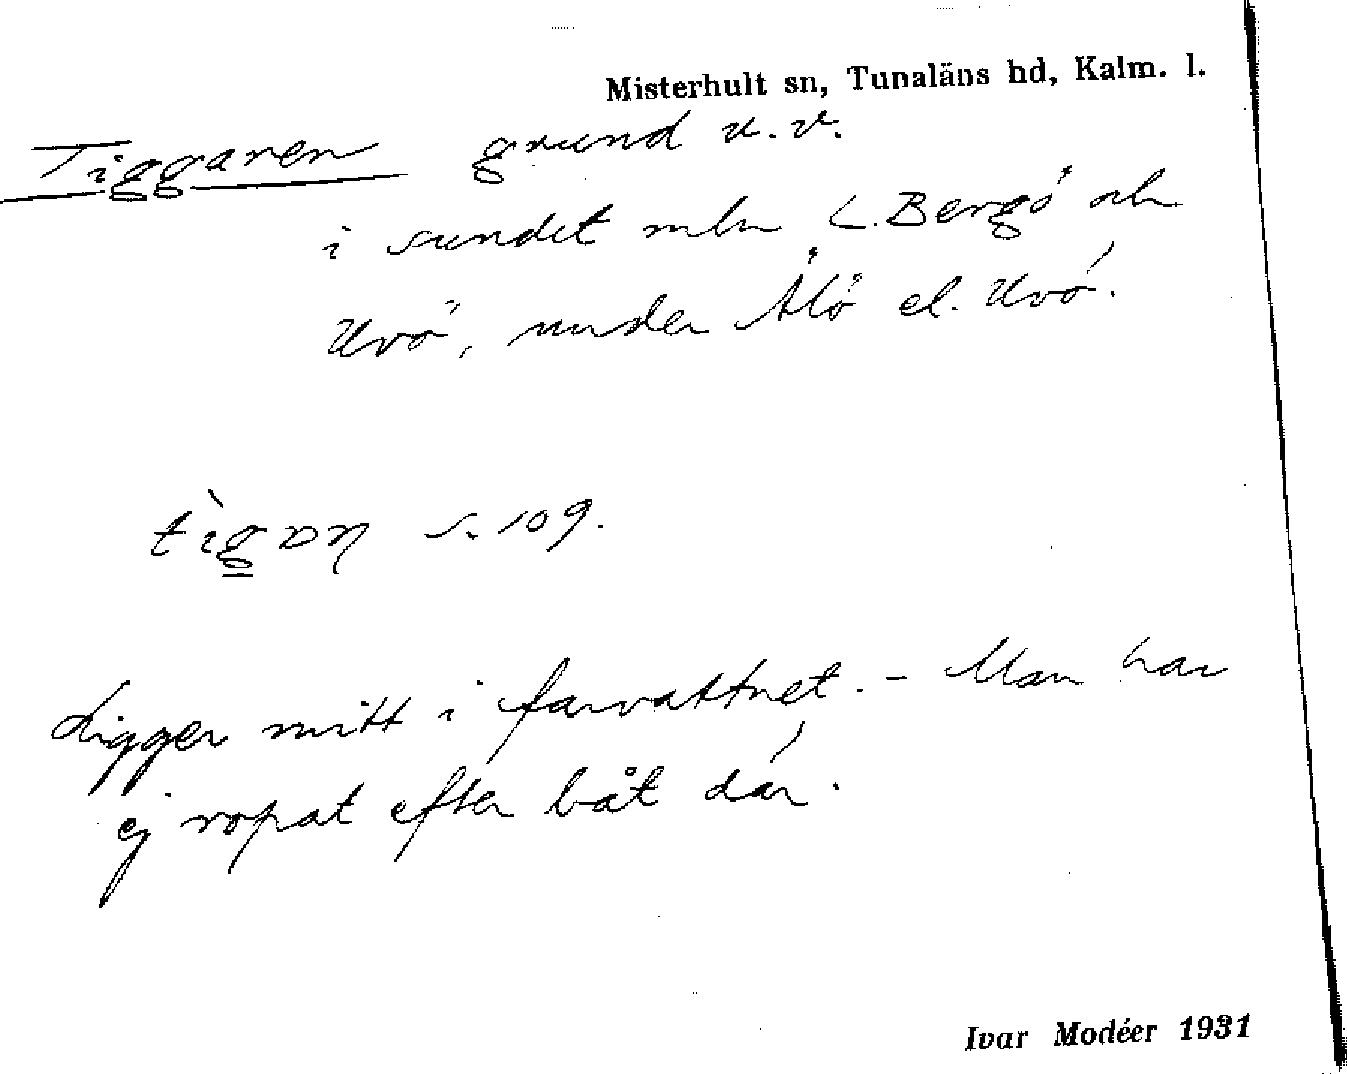 Misterhult sn, Tunaläns hd, Kalm. l.
Tiggaren grund u.v.
i sundet mln L. Bergö och
Uvö, under Älö el. Uvö.
s. 109.
Ligger mitt i farvattnet. - Man har
ej ropat efter båt där.
Ivar Modéer 1931